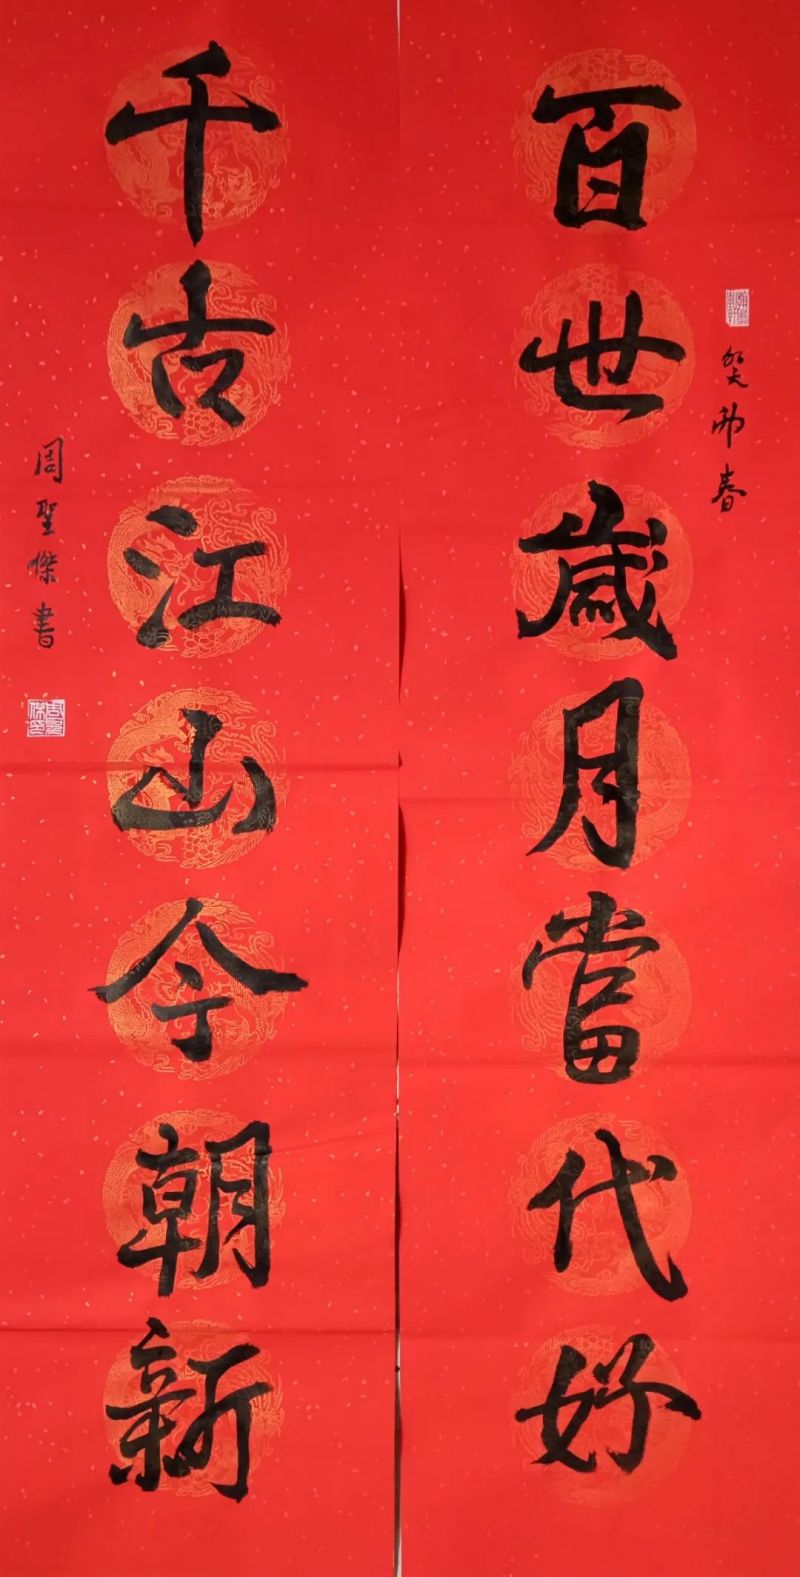 百世歲月當代好
癸卯春
千古江山今朝新
周聖傑書